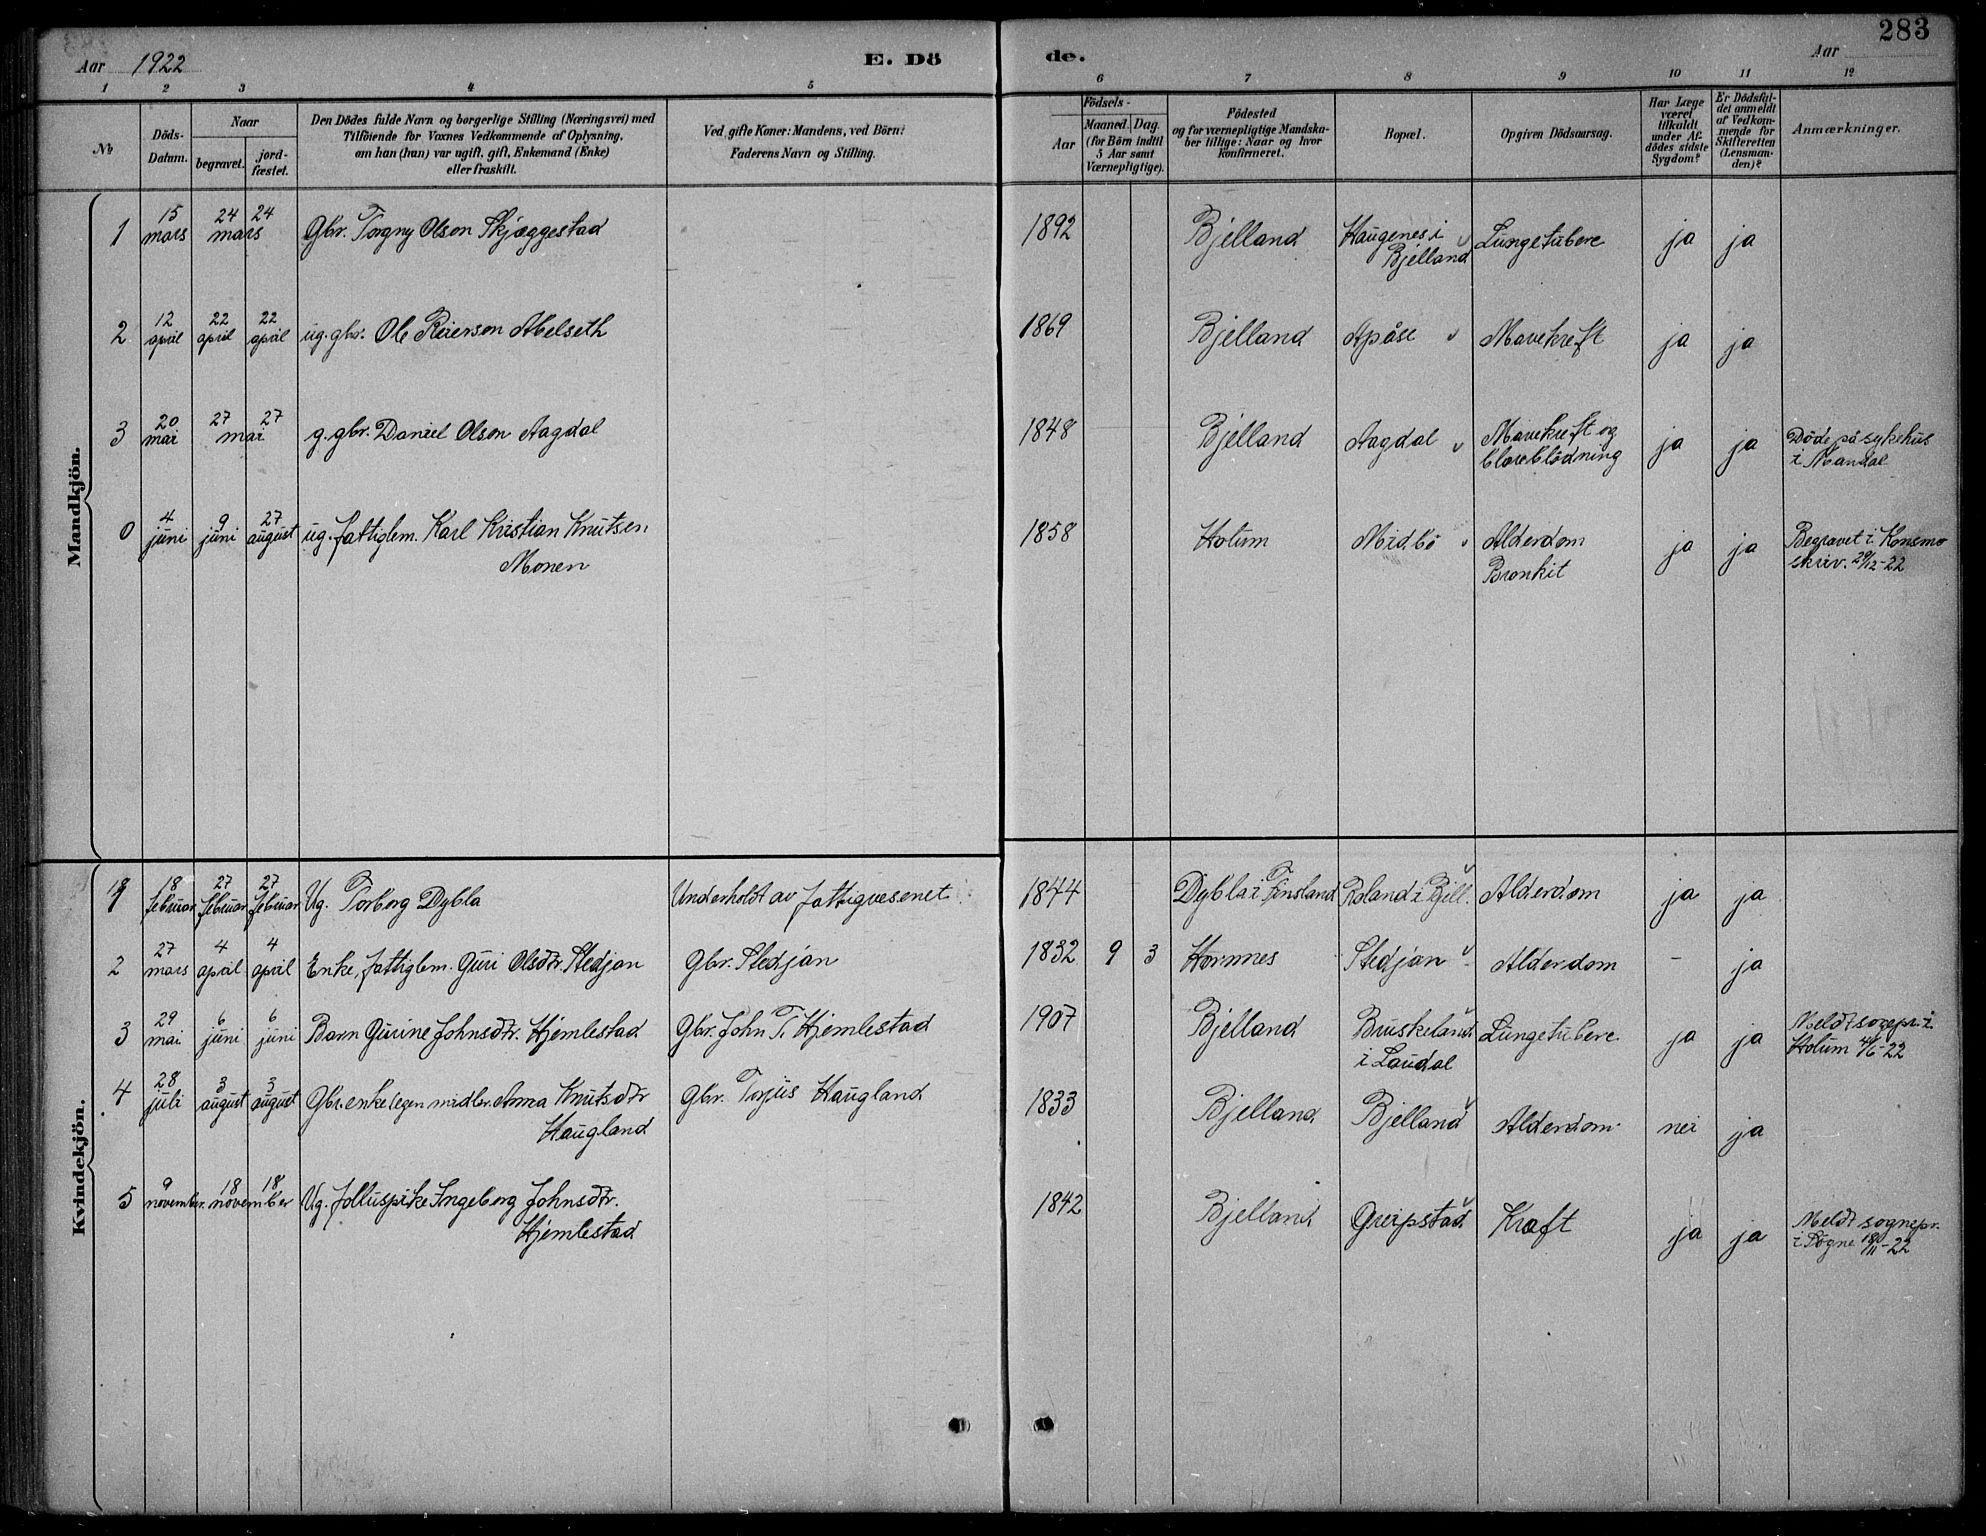 283
Aar 1922 E. Dö de. Aar
1 2 3 4 5 6 7 8 9 10 11 12
№
Döds-
Datum.
Naar
begravet.
jord-
fæstet.
Den Dödes fulde Navn og borgerlige Stilling (Næringsvei) med
Tilföiende for Voxnes Vedkommende af Oplysning,
om han (hun) var ugift, gift, Enkemand (Enke)
eller fraskilt.
Ved gifte Koner: Mandens, ved Börn:
Faderens Navn og Stilling.
Födsels-
Aar
Maaned. Dag.
(for Börn indtil
5 Aar samt
Værnepligtige).
Födested
og for værnepligtige Mandska-
ber tillige: Naar og hvor
konfirmeret.
Bopæl.
Opgiven Dödsaarsag.
Har Læge
været
tilkaldt
under Af-
dödes sidste
Sygdom?
Er Dödsfal-
det anmeldt
af Vedkom-
mende for
Skifteretten
(Lensman-
den)?
Anmærkninger.
Mandkjön.
1 15 mars 24 24 mars Gbr. Torgny Olson Skjæggestad 1892 Bjelland Haugenes i Bjelland Lungetubere ja ja
2 12 april 22 april 22 april ug. gbr. Ole Reierson Abelseth 1869 Bjelland Apåse Mavekreft ja ja
3 20 mai 27 27 mai g. gbr. Daniel Olson Aagdal 1848 Bjelland Aagdal Mavekreft og blæreblödning ja ja Döde på sykehus i Mandal
0 4 juni 9 juni 27 august ug. fattiglem. Karl Kristian Knutsen Monen 1858 Holum Midbö Alderdom Bronkit ja ja Begravet i Konsmo skriv. 29/12-22
Kvindekjön.
1 18 februar 27 februar 27 februar Ug. Torborg Dybla Underholdt av fattigvesenet 1844 Dybla i Finsland Roland i Bjell. Alderdom ja ja
2 27 mars 4 april 4 april Enke, fattiglem. Guri Olsdtr. Stedjan Gbr. Stedjan 1832 9 3 Hornnes Stedjan Alderdom - ja
3 29 mai 6 juni 6 juni Barn Gurine Johnsdtr. Hjemlestad Gbr. John T. Hjemlestad 1907 Bjelland Bruskeland i Laudal Lungetubere ja ja Meldt sogepr. i Holum 4/6-22
4 28 juli 3 august 3 august Gbr.enke (egen midler. Anna Knutsdtr Haugland Gbr. Torjus Haugland 1833 Bjelland Bjelland Alderdom nei ja
5 9 november. 18 18 november Ug. Ingeborg Johnsdtr. Hjemlestad 1842 Bjelland Greipstad Kræft ja ja Meldt sognepr. i Sögne 18/11-22